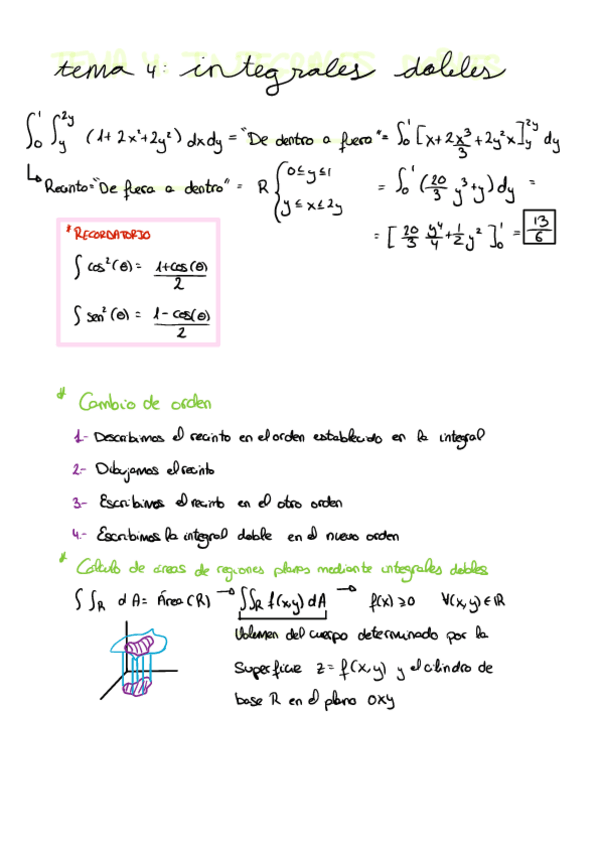 tema 4: integrales dobles
∫₀¹ ∫_y^{2y} (1+2x²+2y²) dxdy = "De dentro a fuera" = ∫₀¹ [x+2x³/3+2y²x]_y^{2y} dy
↳ Recinto = "De fuera a dentro" = R { 0≤y≤1 = ∫₀¹ (20/3 y³+y) dy =
y≤x≤2y
= [20/3 y⁴/4 + 1/2 y²]₀¹ = 13/6
* RECORDATORIO
∫ cos²(θ) = 1+cos(θ)/2
∫ sen²(θ) = 1-cos(θ)/2
* Cambio de orden
1- Describimos el recinto en el orden establecido en la integral
2.- Dibujamos el recinto
3- Escribimos el recinto en el otro orden
4.- Escribimos la integral doble en el nuevo orden
* Cálculo de áreas de regiones planas mediante integrales dobles
∫∫_R dA = Área(R) → ∫∫_R f(x,y) dA → f(x,y) ≥0 ∀(x,y)∈R
Volumen del cuerpo determinado por la
superficie z=f(x,y) y el cilindro de
base R en el plano OXY